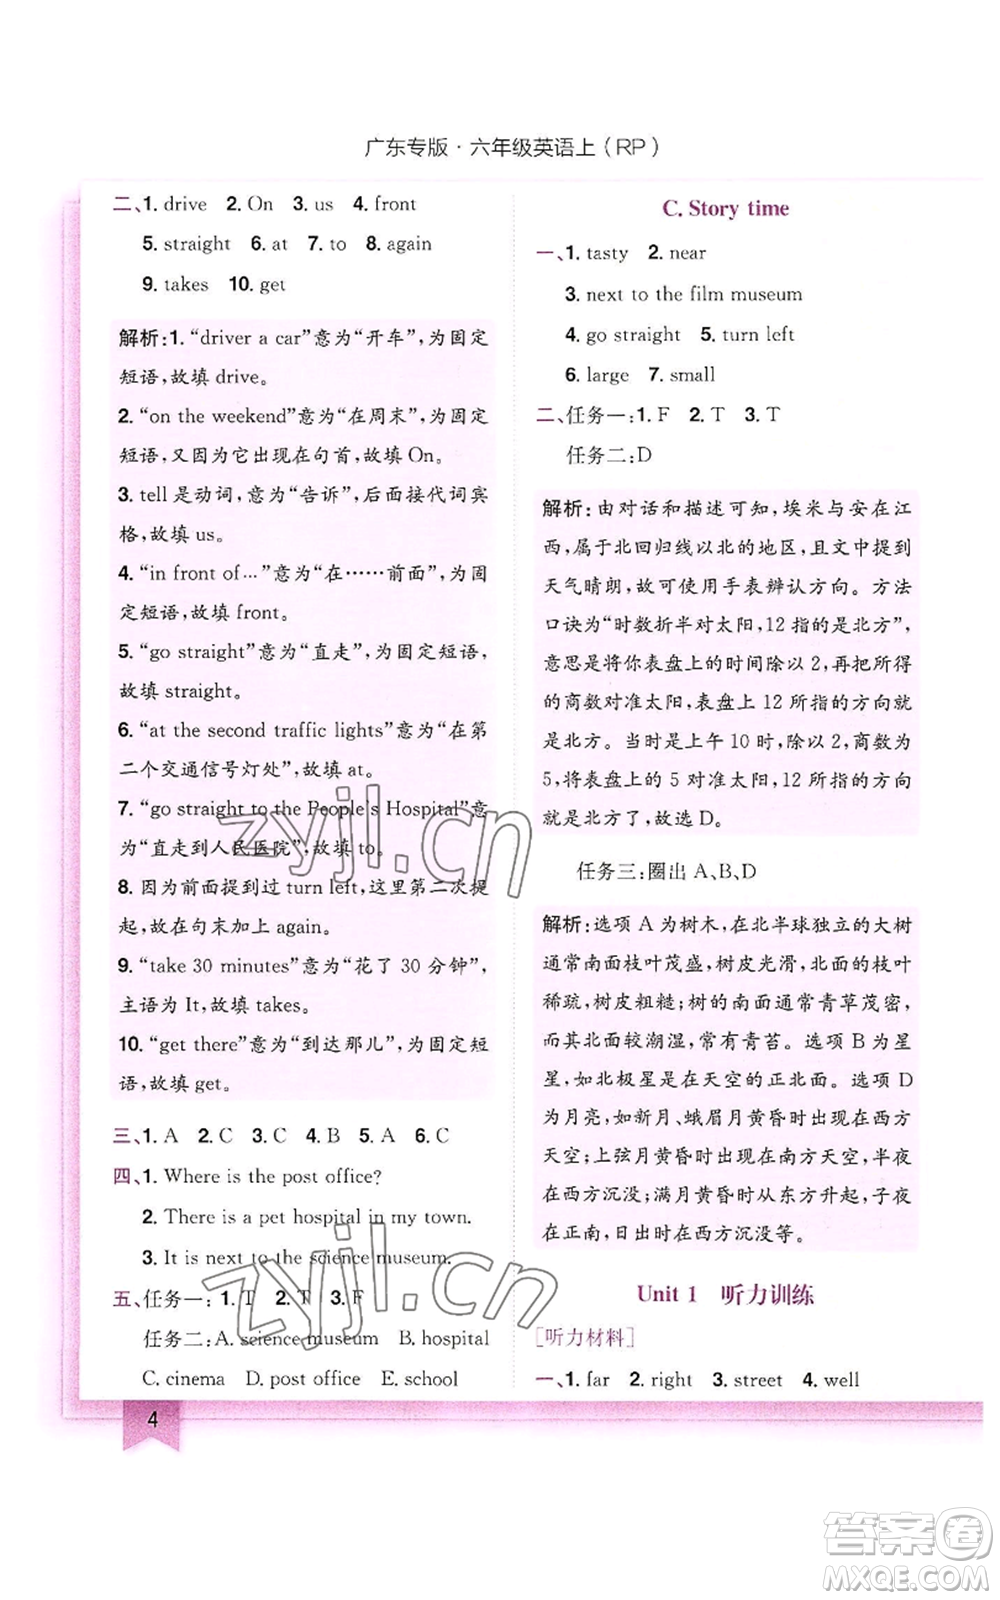 广东专版·六年级英语上(RP)
二、1. drive 2. On 3. us 4. front
5. straight 6. at 7. to 8. again
9. takes 10. get
解析:1. “driver a car”意为“开车”,为固定
短语,故填 drive。
2. “on the weekend”意为“在周末”,为固定
短语,又因为它出现在句首,故填 On。
3. tell 是动词,意为“告诉”,后面接代词宾
格,故填 us。
4. “in front of…”意为“在……前面”,为固
定短语,故填 front。
5. “go straight”意为“直走”,为固定短语,
故填 straight。
6. “at the second traffic lights”意为“在第
二个交通信号灯处”,故填 at。
7. “go straight to the People's Hospital”意
为“直走到人民医院”,故填 to。
8. 因为前面提到过 turn left,这里第二次提
起,故在句末加上 again。
9. “take 30 minutes”意为“花了 30 分钟”,
主语为 It,故填 takes。
10. “get there”意为“到达那儿”,为固定短
语,故填 get。
三、1. A 2. C 3. C 4. B 5. A 6. C
四、1. Where is the post office?
2. There is a pet hospital in my town.
3. It is next to the science museum.
五、任务一:1. T 2. T 3. F
任务二:A. science museum B. hospital
C. cinema D. post office E. school
4
C. Story time
一、1. tasty 2. near
3. next to the film museum
4. go straight 5. turn left
6. large 7. small
二、任务一:1. F 2. T 3. T
任务二:D
解析:由对话和描述可知,埃米与安在江
西,属于北回归线以北的地区,且文中提到
天气晴朗,故可使用手表辨认方向。方法
口诀为“时数折半对太阳,12 指的是北方”,
意思是将你表盘上的时间除以 2,再把所得
的商数对准太阳,表盘上 12 所指的方向就
是北方。当时是上午 10 时,除以 2,商数为
5,将表盘上的 5 对准太阳,12 所指的方向
就是北方了,故选 D。
任务三:圈出 A、B、D
解析:选项 A 为树木,在北半球独立的大树
通常南面枝叶茂盛,树皮光滑,北面的枝叶
稀疏,树皮粗糙;树的南面通常青草茂密,
而其北面较潮湿,常有青苔。选项 B 为星
星,如北极星是在天空的正北面。选项 D
为月亮,如新月、蛾眉月黄昏时出现在西方
天空;上弦月黄昏时出现在南方天空,半夜
在西方沉没;满月黄昏时从东方升起,子夜
在正南,日出时在西方沉没等。
Unit 1 听力训练
[听力材料]
一、1. far 2. right 3. street 4. well
zyjl.cn
zyjl.cn
答案圈
MXQE.COM